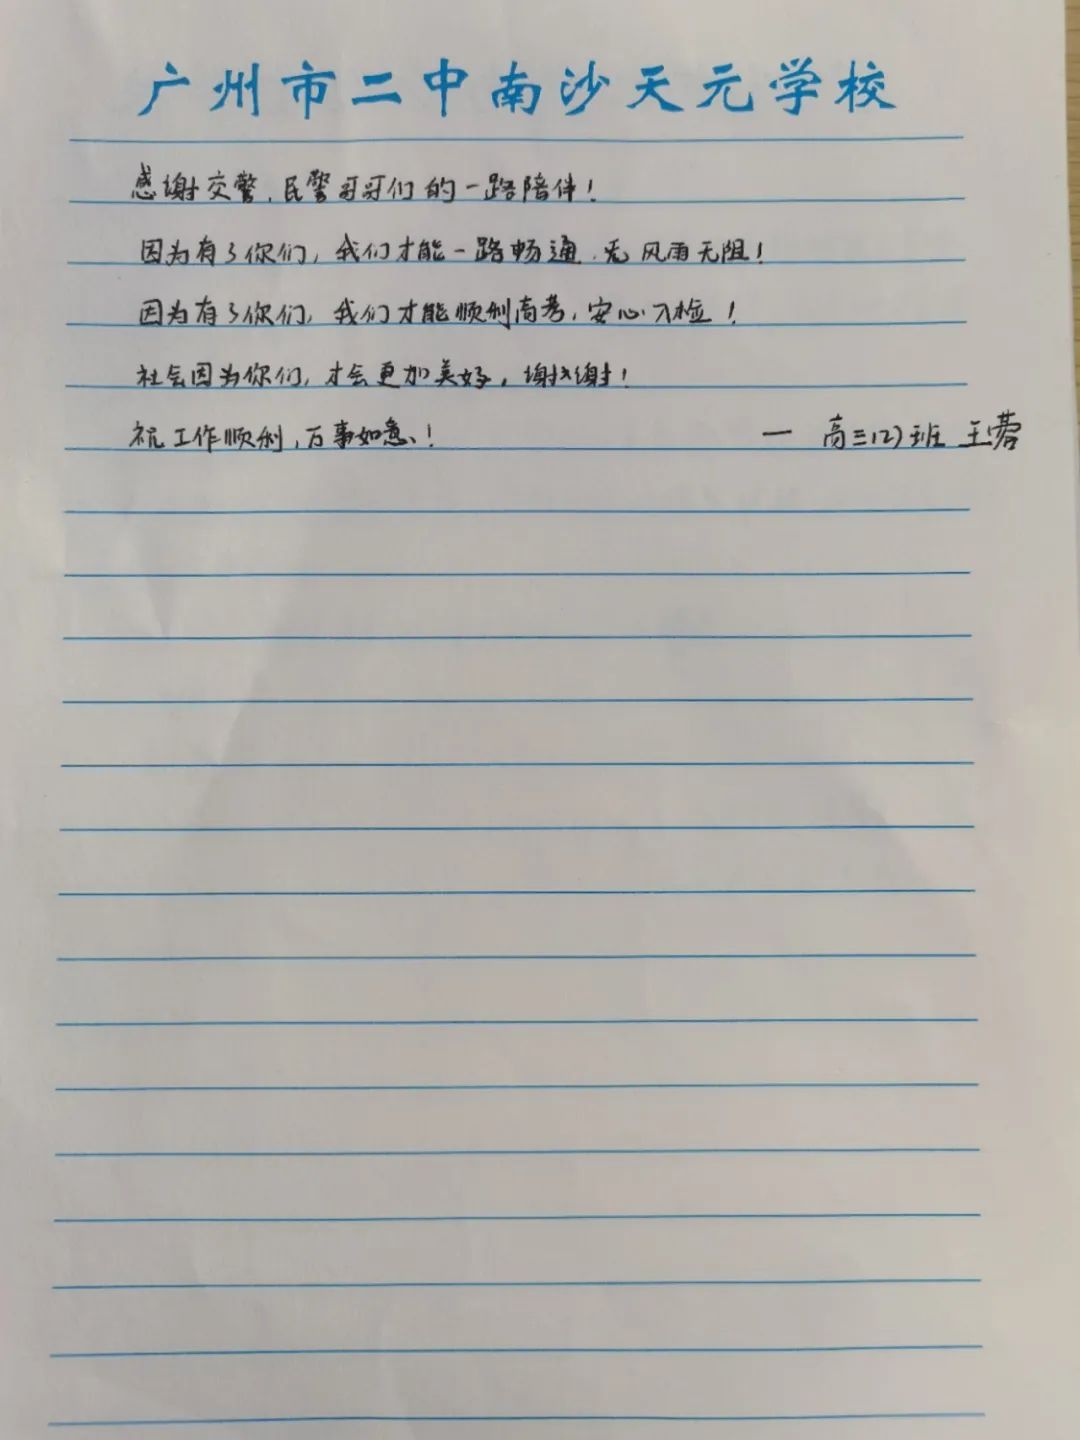 广州市二中南沙天元学校
感谢交警、民警哥哥们的一路陪伴！
因为有了你们，我们才能一路畅通、无风雨无阻！
因为有了你们，我们才能顺利高考，安心入检！
社会因为你们，才会更加美好，谢谢！
祝工作顺利，万事如意！ — 高三(2)班 王蓉